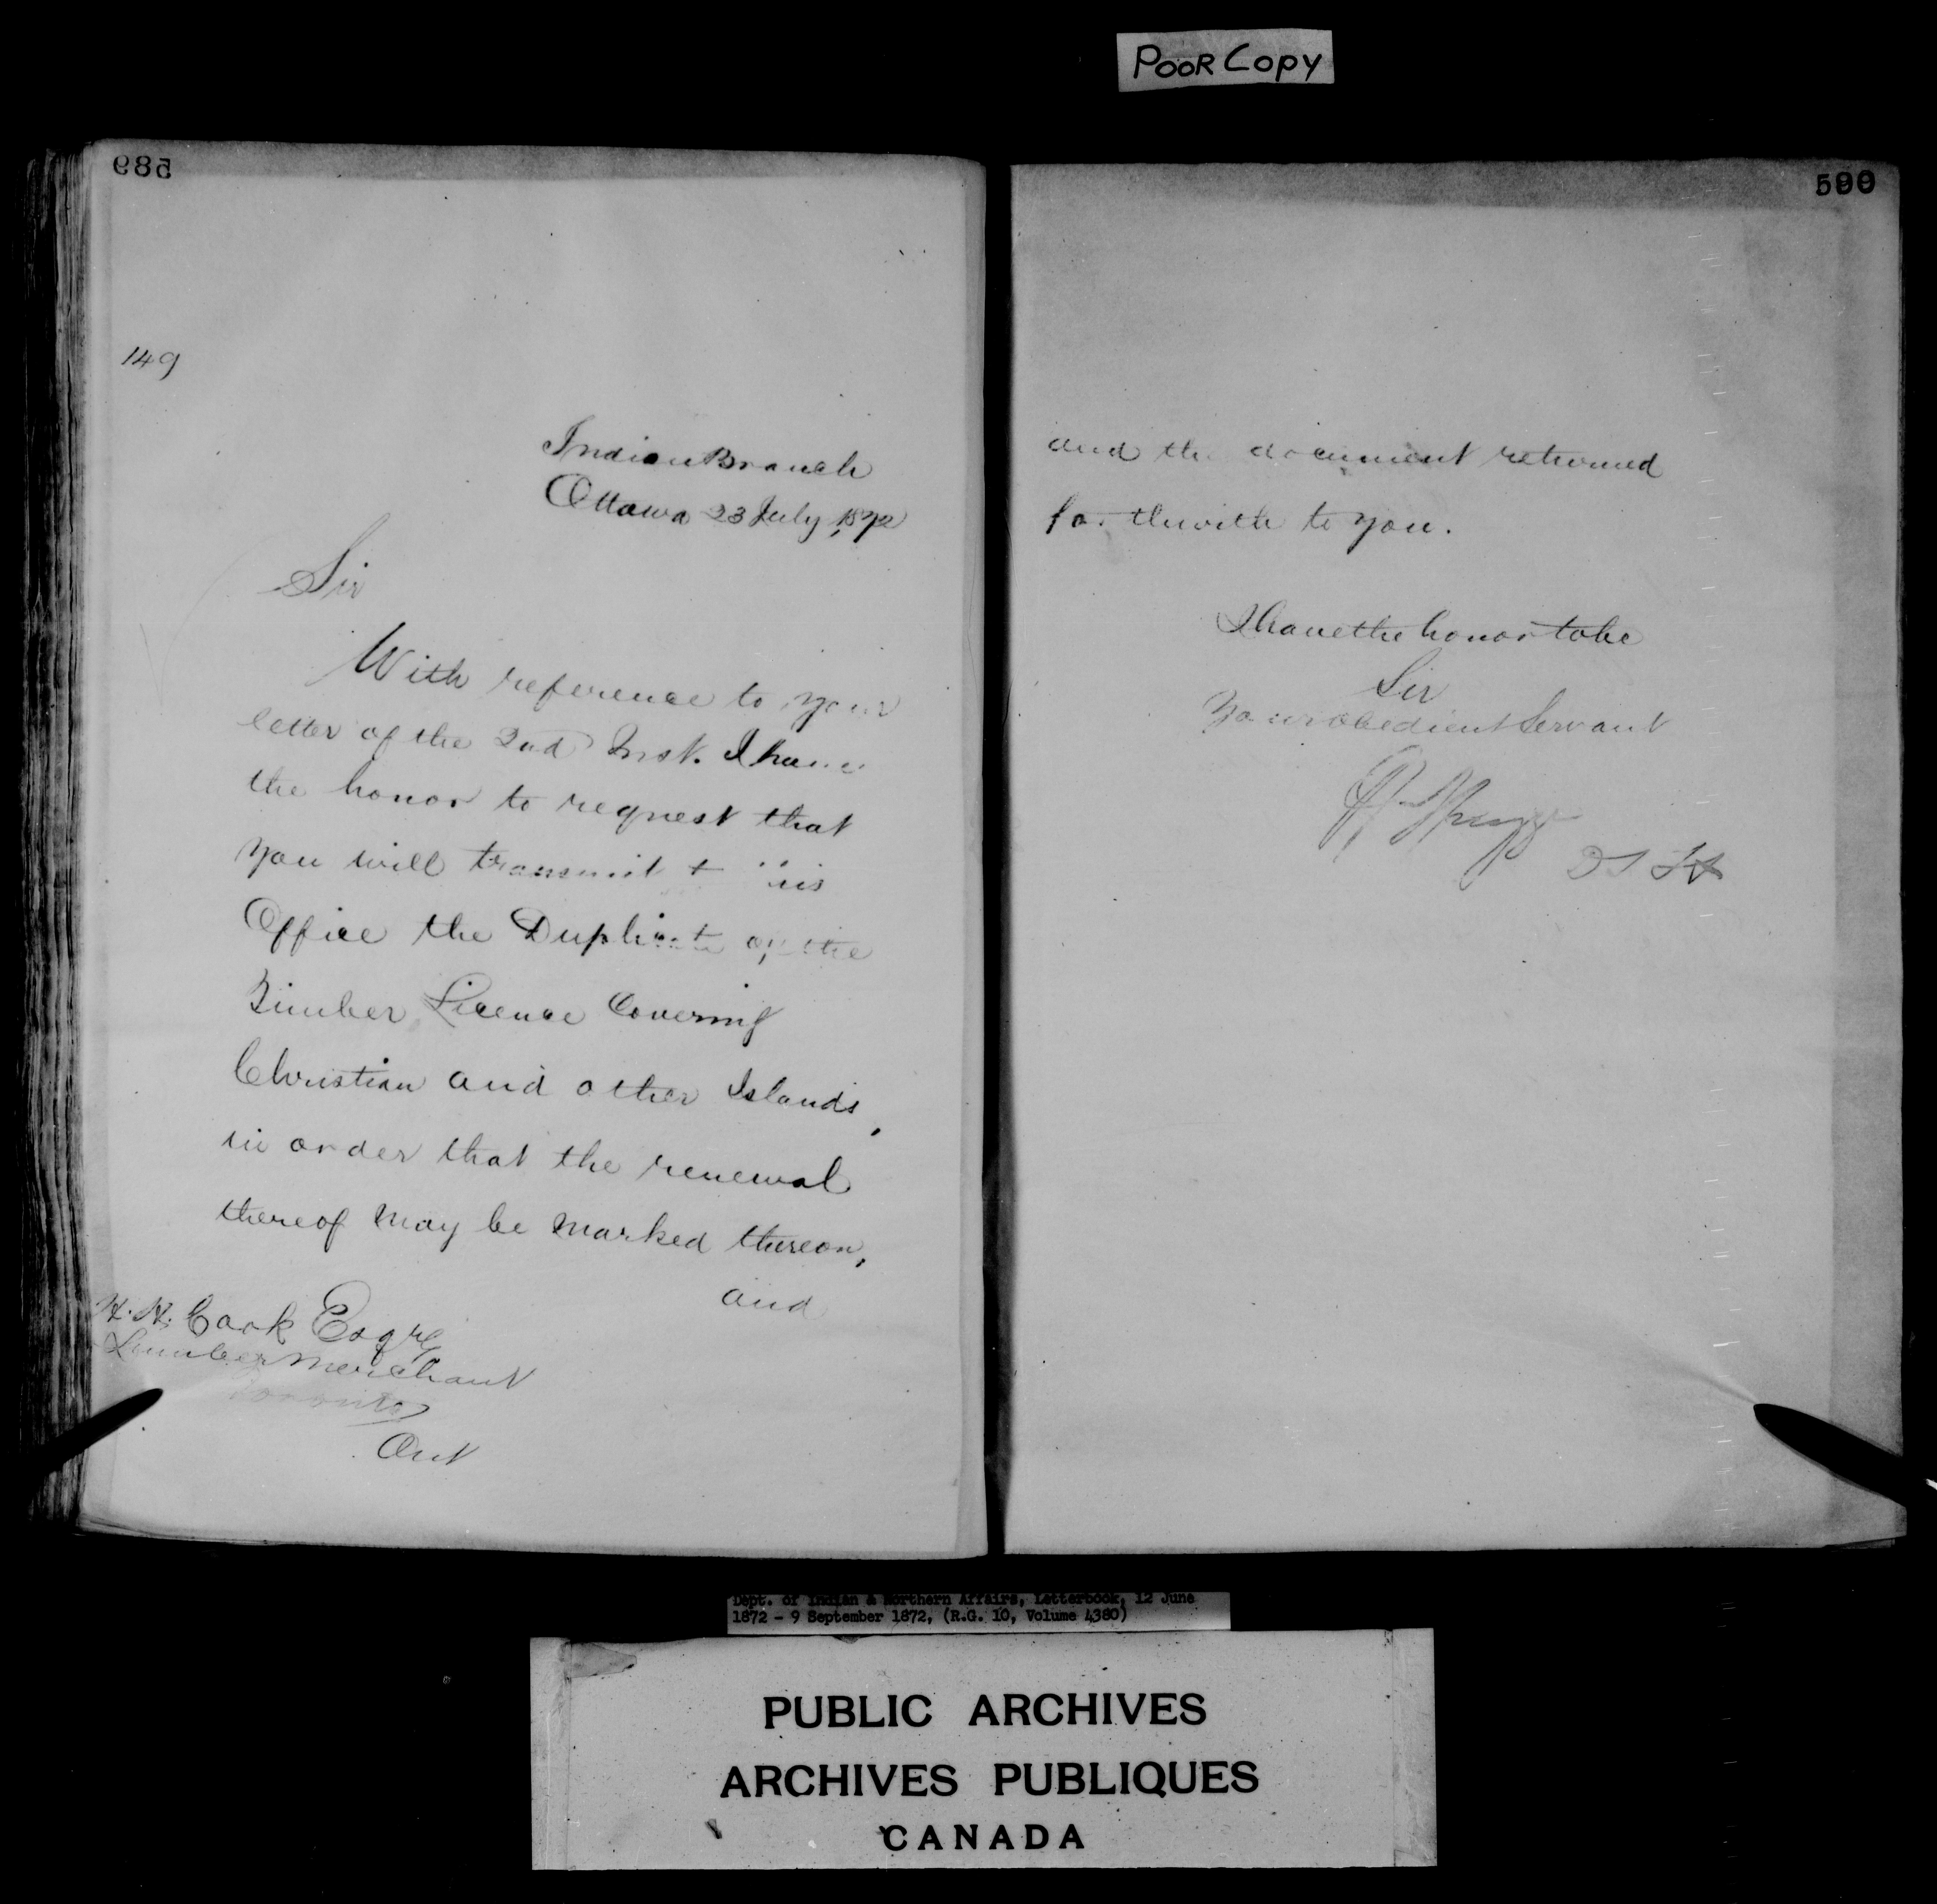 POOR COPY
589
149
Indian Branch
Ottawa 23 July, 1872
Sir
With reference to your
letter of the 2nd Inst. I have
the honor to request that
you will transmit
Office the Duplicate of the
Timber Licence Covering
Christian and other Islands,
in order that the renewal
thereof may be marked thereon,
and
H. H. Cook Esqre
Lumber Merchant
Toronto
Ont
590
and the document returned
forthwith to you.
I have the honor to be
Sir
Your obedient Servant
Dept. of Indian & Northern Affairs, Letterbook, 12 June
1872 - 9 September 1872, (R.G. 10, Volume 4380)
PUBLIC ARCHIVES
ARCHIVES PUBLIQUES
CANADA